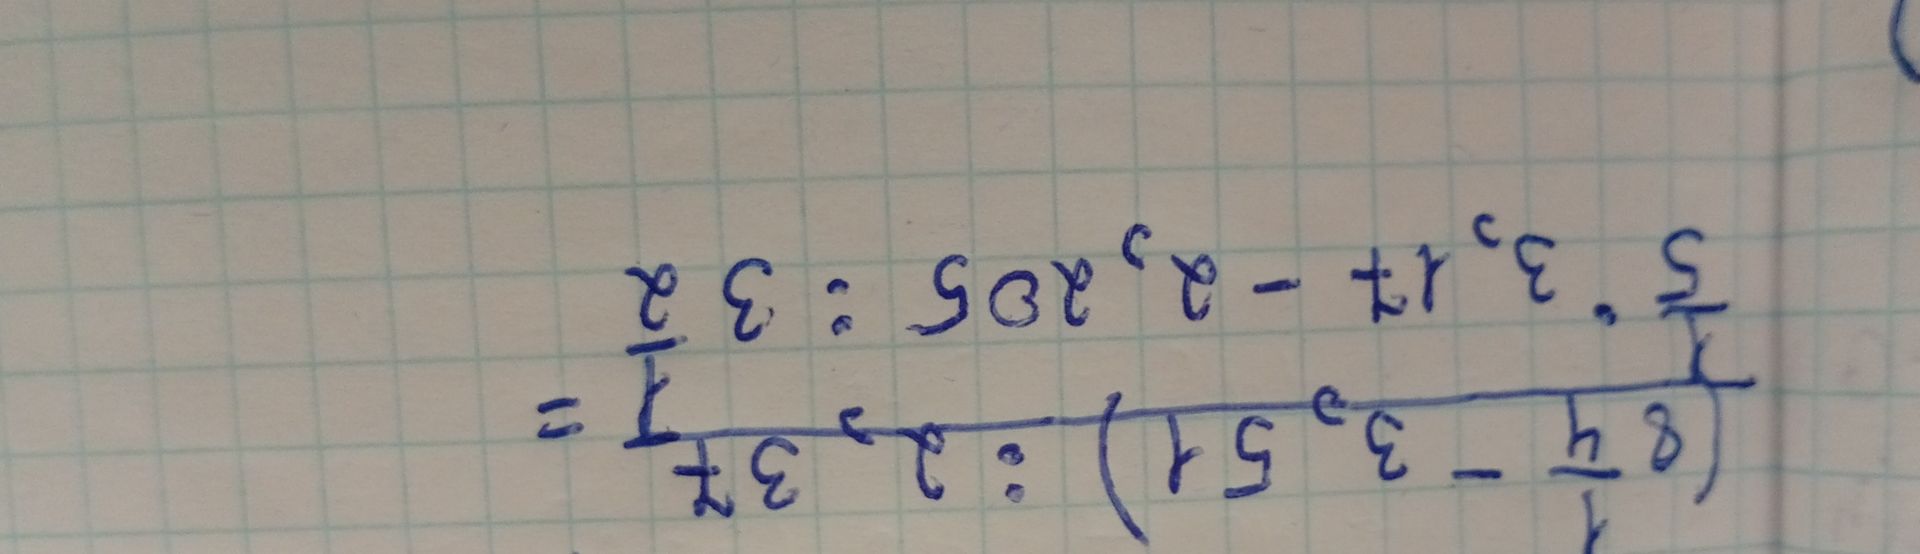 (8 1/4 - 3,51) : 2,37
1/5 · 3,17 - 2,205 : 3 1/2 =